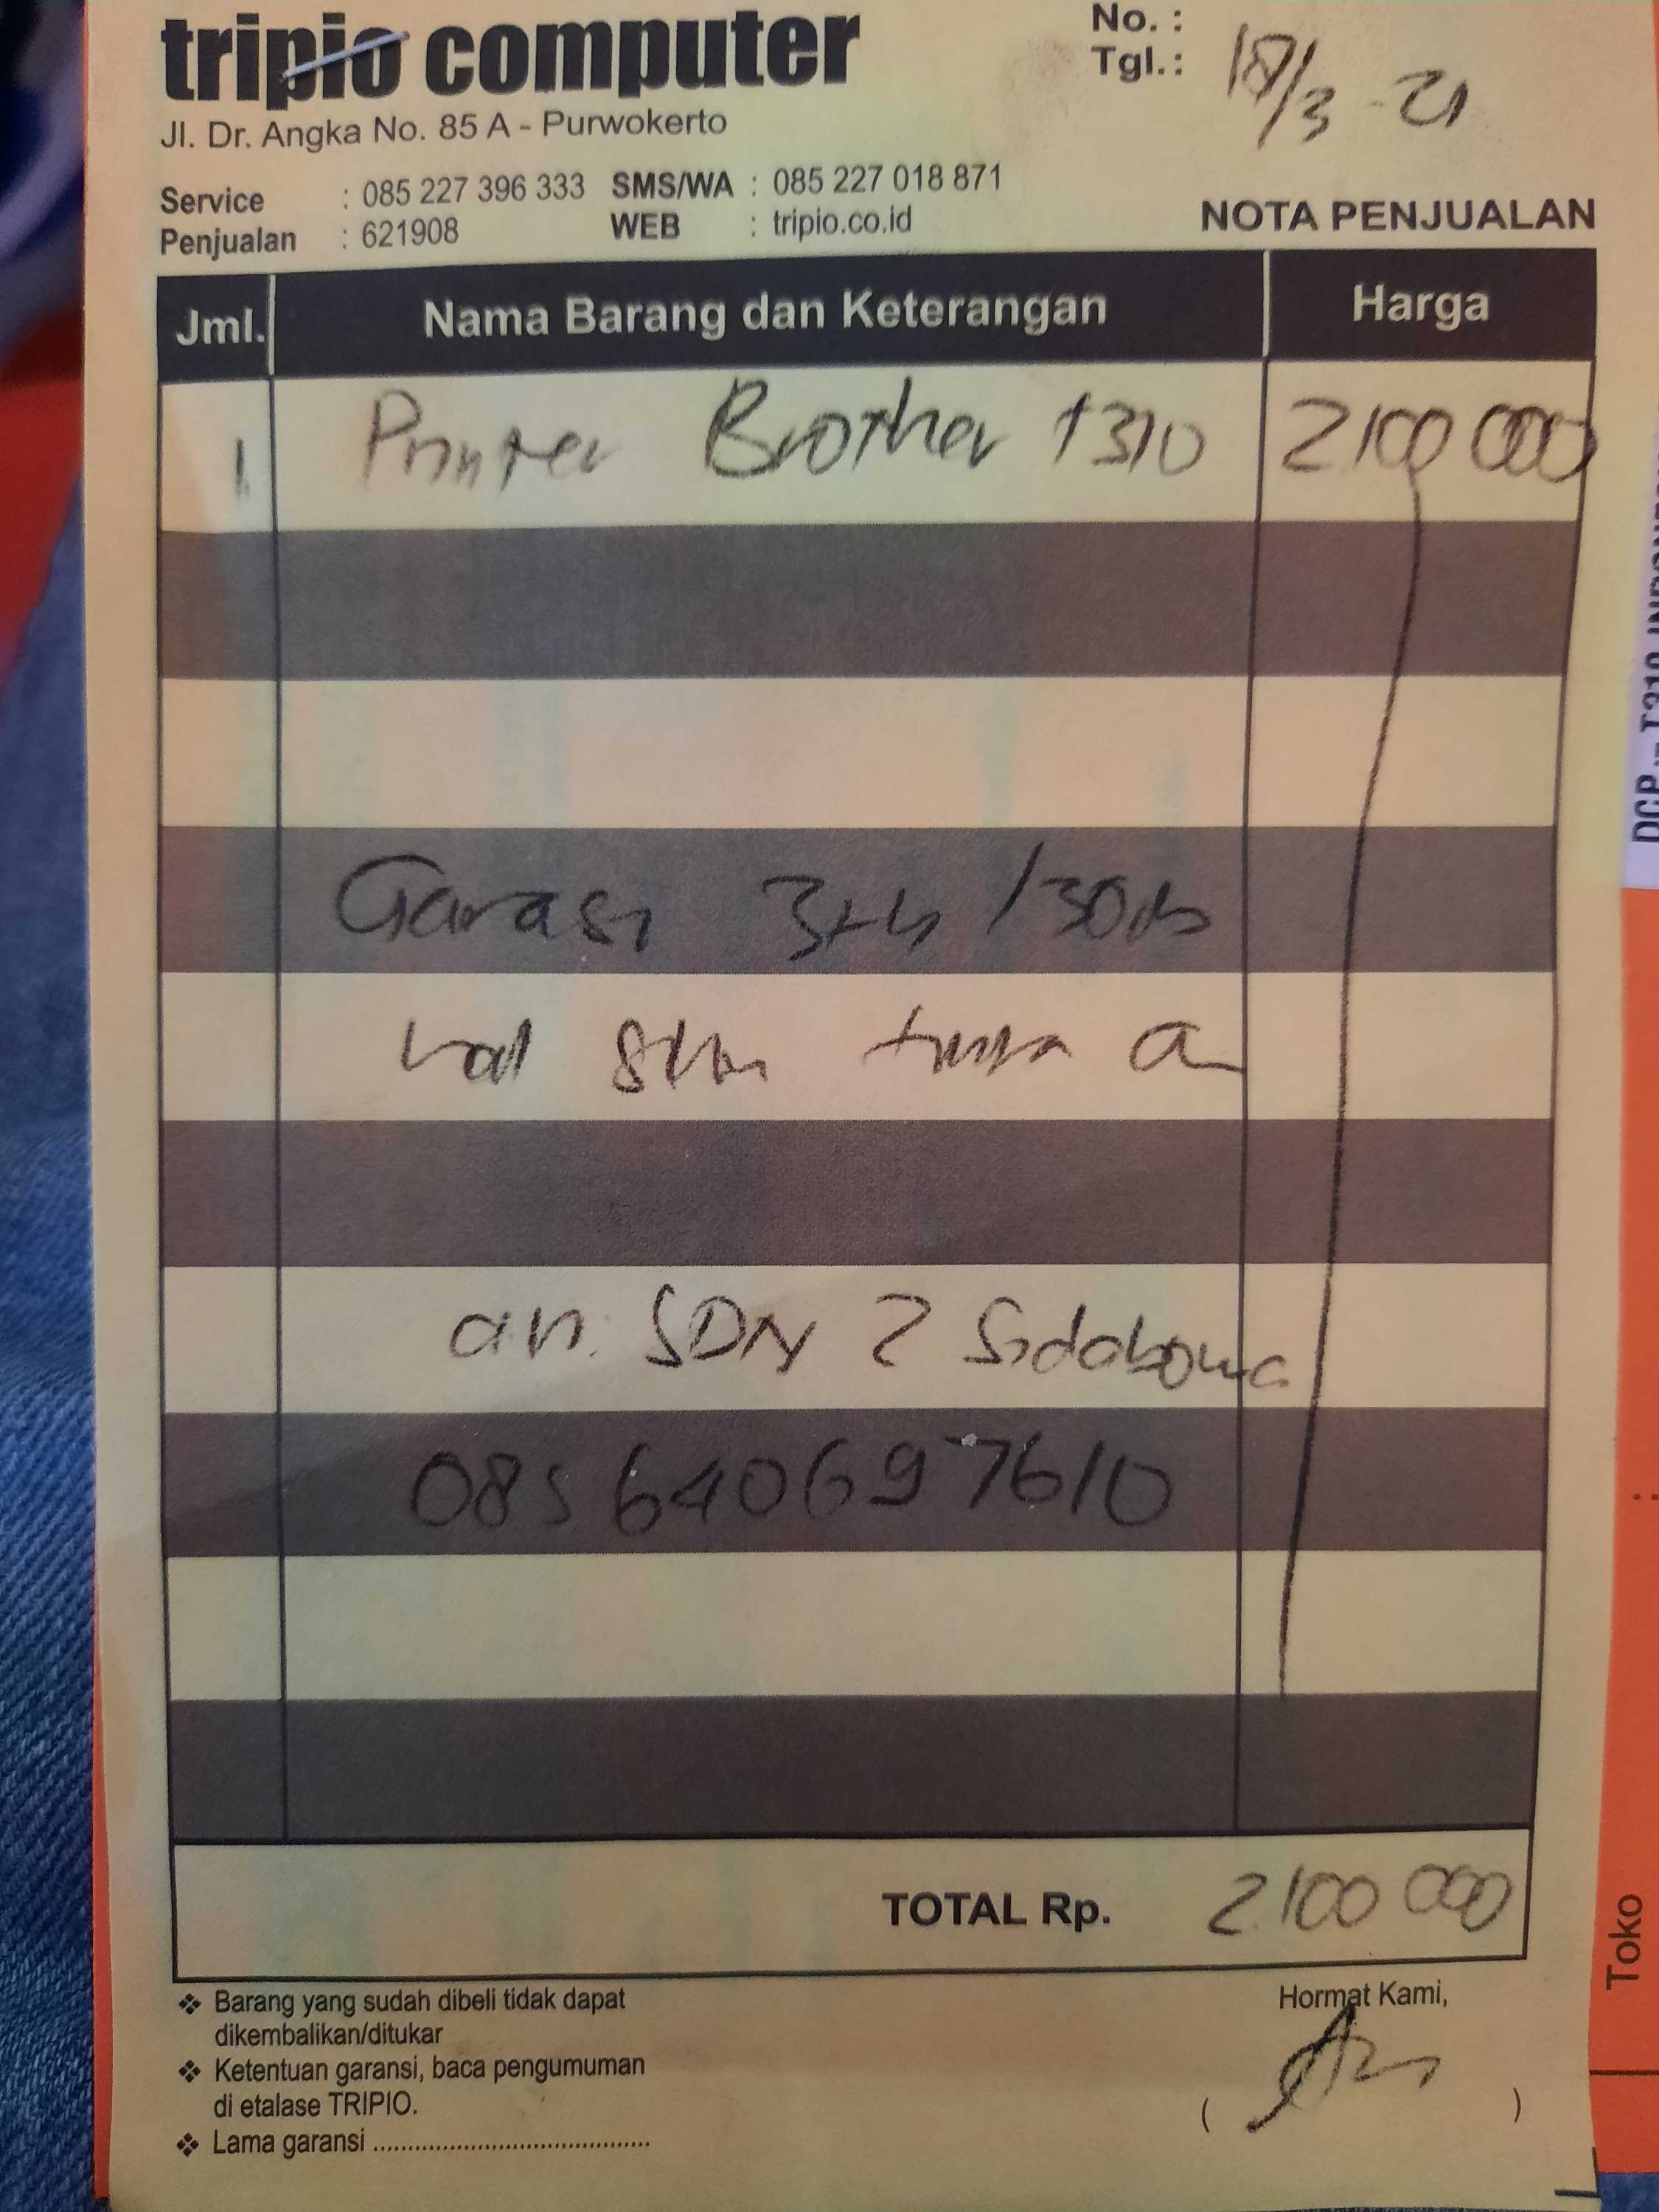 tripio computer
Jl. Dr. Angka No. 85 A - Purwokerto
No. :
Tgl. : 18/3 - 21
Service : 085 227 396 333 SMS/WA : 085 227 018 871
Penjualan : 621908 WEB : tripio.co.id
NOTA PENJUALAN
Jml. Nama Barang dan Keterangan Harga
1 Printer Brother T310 2100 000
Garasi 3th /30rb
an. SDN 2 Sidabowa
085640697610
TOTAL Rp. 2100 000
❖ Barang yang sudah dibeli tidak dapat
dikembalikan/ditukar
❖ Ketentuan garansi, baca pengumuman
di etalase TRIPIO.
❖ Lama garansi ..........................................
Hormat Kami,
( )
DCP - T310 INDONES
Toko